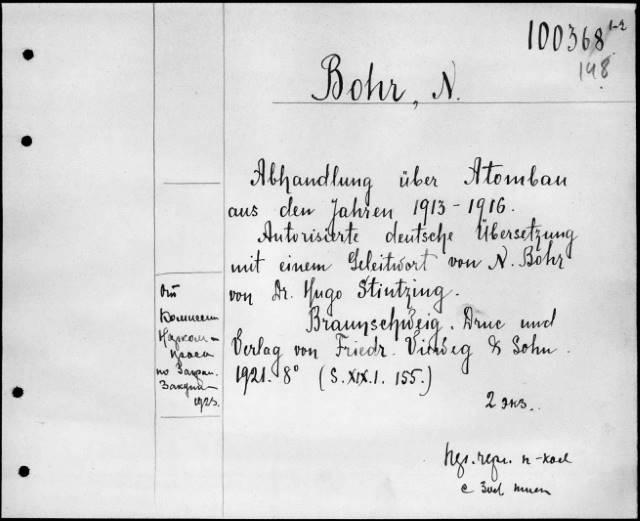 100368 1-2
148
Bohr, N.
Abhandlung über Atombau
aus den Jahren 1913-1916.
Autorisierte deutsche Übersetzung
mit einem Geleitwort von N. Bohr
von Dr. Hugo Stintzing.
Braunschweig. Druc und
Verlag von Friedr. Vieweg & Sohn.
1921. 8° (S. XIX. I. 155.)
2 экз.
От
Комиссии
Нарком-
проса
по Загран.
Закупк
1923.